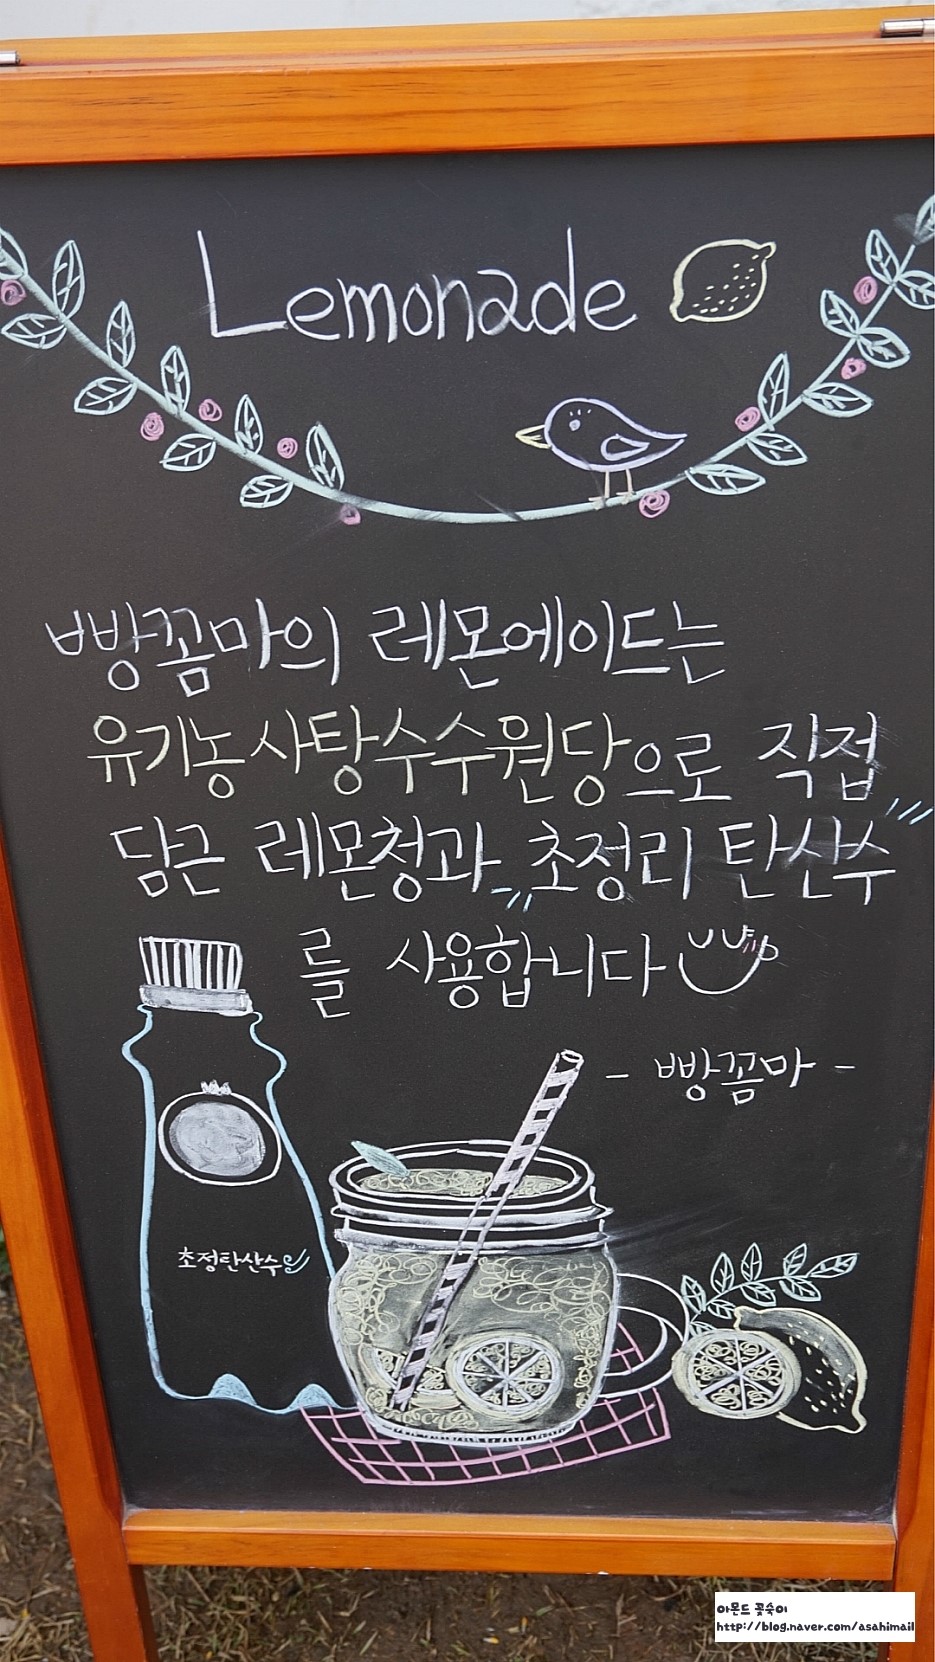 Lemonade
빵꼼마의 레몬에이드는
유기농사탕수수원당으로 직접
담근 레몬청과 초정리 탄산수
를 사용합니다
- 빵꼼마 -
초정탄산수
아몬드 꽃숙이
http://blog.naver.com/asahimail